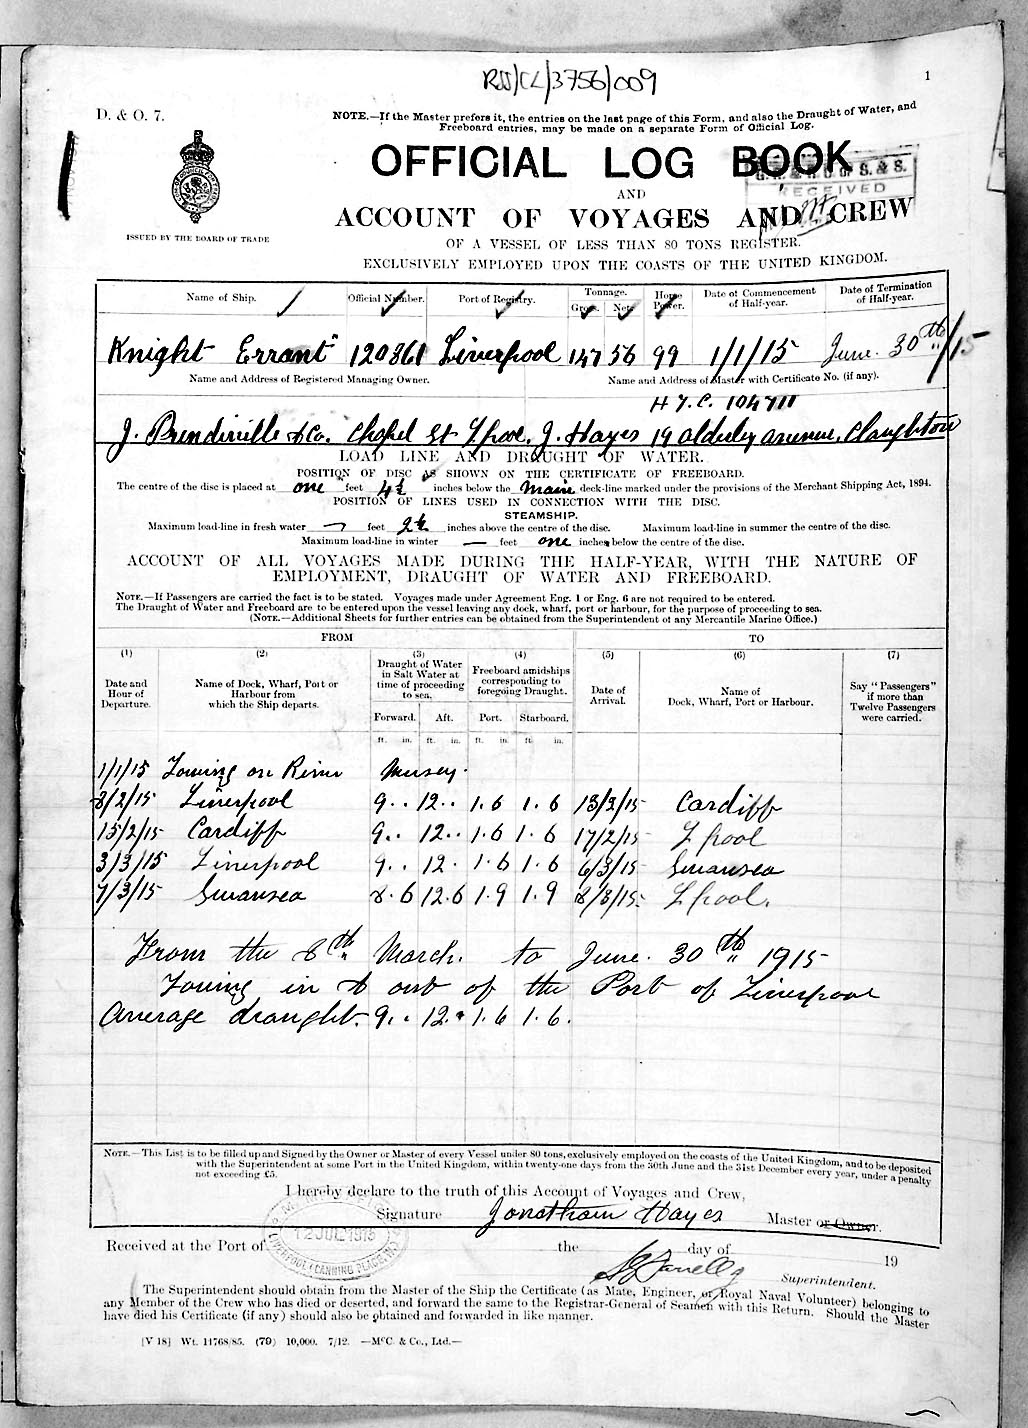 RSS/CL/3756/009
1
D. & O. 7.
NOTE.—If the Master prefers it, the entries on the last page of this Form, and also the Draught of Water, and
Freeboard entries, may be made on a separate Form of Official Log.
OFFICIAL LOG BOOK
R.G. of S. & S.
RECEIVED
AND
ACCOUNT OF VOYAGES AND CREW
ISSUED BY THE BOARD OF TRADE
OF A VESSEL OF LESS THAN 80 TONS REGISTER.
EXCLUSIVELY EMPLOYED UPON THE COASTS OF THE UNITED KINGDOM.
Name of Ship. Official Number. Port of Registry. Tonnage. Gross. Nett. Horse Power. Date of Commencement of Half-year. Date of Termination of Half-year.
Knight Errant" 120861 Liverpool 147 56 99 1/1/15 June. 30th/15
Name and Address of Registered Managing Owner. Name and Address of Master with Certificate No. (if any).
H.T.C. 104711
J. Prendiville & Co. Chapel St L'pool, J. Hayes 19 Alderley Avenue, Claughton
LOAD LINE AND DRAUGHT OF WATER.
POSITION OF DISC AS SHOWN ON THE CERTIFICATE OF FREEBOARD.
The centre of the disc is placed at one feet 4½ inches below the Main deck-line marked under the provisions of the Merchant Shipping Act, 1894.
POSITION OF LINES USED IN CONNECTION WITH THE DISC.
STEAMSHIP.
Maximum load-line in fresh water — feet 2½ inches above the centre of the disc. Maximum load-line in summer the centre of the disc.
Maximum load-line in winter — feet one inches below the centre of the disc.
ACCOUNT OF ALL VOYAGES MADE DURING THE HALF-YEAR, WITH THE NATURE OF
EMPLOYMENT, DRAUGHT OF WATER AND FREEBOARD.
NOTE.—If Passengers are carried the fact is to be stated. Voyages made under Agreement Eng. 1 or Eng. 6 are not required to be entered.
The Draught of Water and Freeboard are to be entered upon the vessel leaving any dock, wharf, port or harbour, for the purpose of proceeding to sea.
(NOTE.—Additional Sheets for further entries can be obtained from the Superintendent of any Mercantile Marine Office.)
FROM TO
(1) (2) (3) (4) (5) (6) (7)
Date and Hour of Departure. Name of Dock, Wharf, Port or Harbour from which the Ship departs. Draught of Water in Salt Water at time of proceeding to sea. Freeboard amidships corresponding to foregoing Draught. Date of Arrival. Name of Dock, Wharf, Port or Harbour. Say "Passengers" if more than Twelve Passengers were carried.
Forward. Aft. Port. Starboard.
ft. in. ft. in. ft. in. ft. in.
1/1/15 Towing on River Mersey.
8/2/15 Liverpool 9.. 12.. 1.6 1.6 13/2/15 Cardiff
15/2/15 Cardiff 9.. 12.. 1.6 1.6 17/2/15 L'pool
3/3/15 Liverpool 9.. 12. 1.6 1.6 6/3/15 Swansea
7/3/15 Swansea 8.6 12.6 1.9 1.9 8/3/15 L'pool.
From the 8th March. to June. 30th 1915
Towing in & out of the Port of Liverpool
Average draught. 9.. 12. 1.6 1.6.
NOTE.—This List is to be filled up and Signed by the Owner or Master of every Vessel under 80 tons, exclusively employed on the coasts of the United Kingdom, and to be deposited
with the Superintendent at some Port in the United Kingdom, within twenty-one days from the 30th June and the 31st December every year, under a penalty
not exceeding £5.
I hereby declare to the truth of this Account of Voyages and Crew,
Signature Jonathan Hayes Master or Owner.
Received at the Port of the day of 19
12 JUL 1915
LIVERPOOL (CANNING PLACE)
Superintendent.
The Superintendent should obtain from the Master of the Ship the Certificate (as Mate, Engineer, or Royal Naval Volunteer) belonging to
any Member of the Crew who has died or deserted, and forward the same to the Registrar-General of Seamen with this Return. Should the Master
have died his Certificate (if any) should also be obtained and forwarded in like manner.
[V 18] Wt. 11768/85. (79) 10,000. 7/12. —McC. & Co., Ltd.—